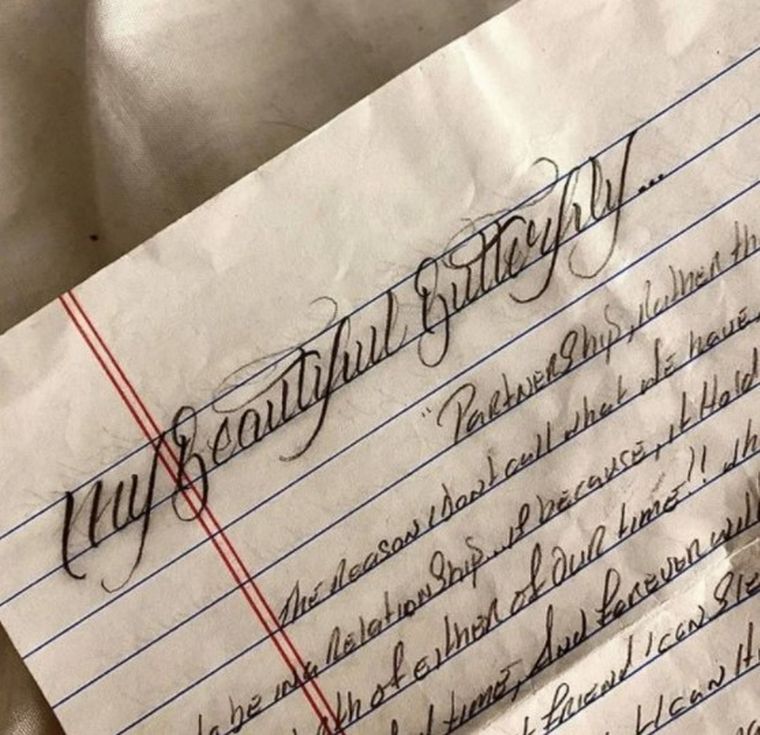 My Beautiful Butterfly...
"Partnership, Rather th
The Reason I Dont call what we have
to be in a Relationship.. is because, it Hold
of either of our time!! Wh
time, And Forever will
friend I can
I can